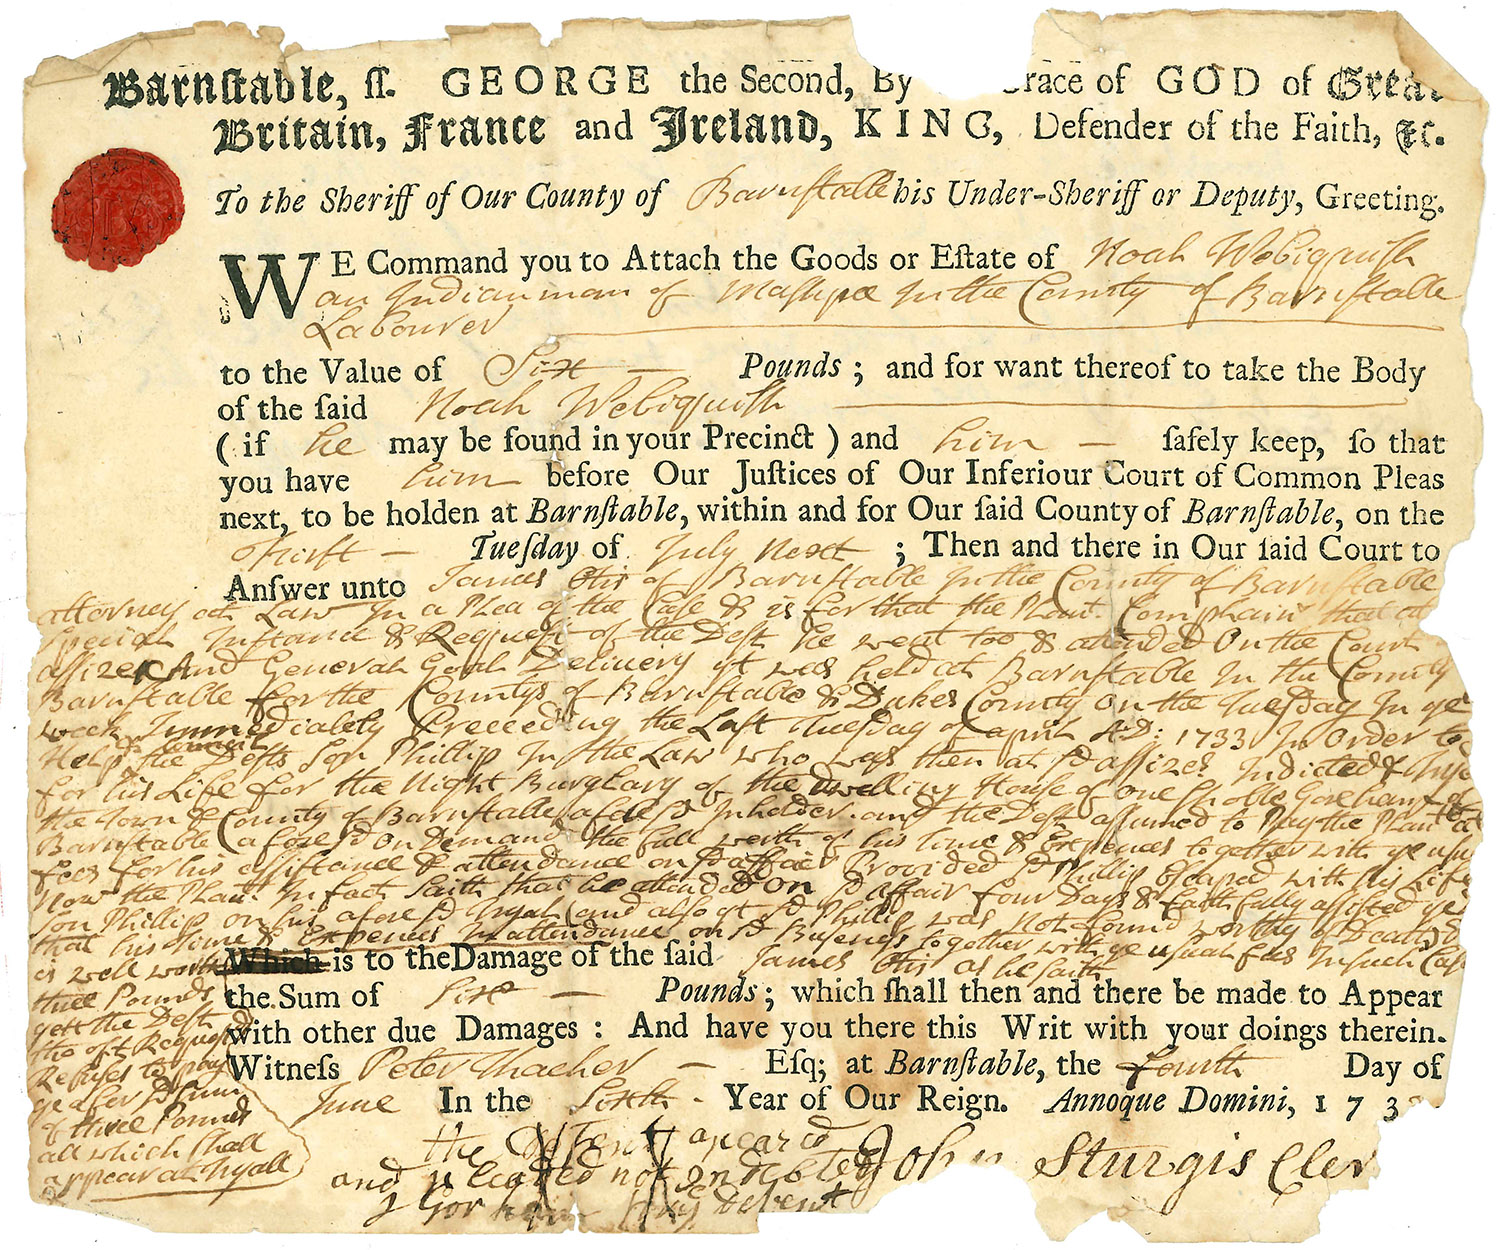 Barnſtable, ſſ. GEORGE the Second, By race of GOD of Great
Britain, France and Ireland, KING, Defender of the Faith, &c.
To the Sheriff of Our County of Barnſtable his Under-Sheriff or Deputy, Greeting.
WE Command you to Attach the Goods or Eſtate of Noah Webiquish
an Indian man of Mashpee In the County of Barnſtable
Labourer
to the Value of Six Pounds ; and for want thereof to take the Body
of the ſaid Noah Webiquish
( if he may be found in your Precinct ) and him ſafely keep, ſo that
you have him before Our Juſtices of Our Inferiour Court of Common Pleas
next, to be holden at Barnſtable, within and for Our ſaid County of Barnſtable, on the
Tueſday of July next ; Then and there in Our ſaid Court to
Anſwer unto James Otis of Barnſtable In the County of Barnſtable
attorney at Law In a Plea of the Case & is for that the Plant. Complains that at
Special Instance & Request of the Deft he went too & attended On the Court
assizes And General Goal Delivery yt was held at Barnſtable In the County
Barnſtable for the Countys of Barnſtable & Dukes County On the Tuesday In ye
week Immediately Preceeding the Last Tuesday of april A:D: 1733 In Order to
Help & the Defts Son Phillip In the Law who was then at sd assizes Indicted &
for his Life for the Night Burglary of the Dwelling House of One Gorham of
the Town & County of Barnſtable aforesd Inholder and the Deft assumed to Pay the Plant at
Barnſtable aforesd On Demand the full worth of his time & Expences together with ye usual
fees for his assistance & attendance on sd affair Provided sd Phillip Escaped with his Life
Now the Plant. In fact Saith that he attended On sd affair four Days & faithfully assisted ye
son Phillip on his aforesd tryal (and also yt sd Phillip was Not found worthy of Death) &
that his time & Expences In attendance on sd Buseness together with ye usual fees In such Case
is well worth Which is to the Damage of the ſaid James Otis as he saith
three Pounds the Sum of Six Pounds ; which ſhall then and there be made to Appear
yett the Deft with other due Damages : And have you there this Writ with your doings therein.
tho oft Requested
Witneſs Peter Thacher Eſq; at Barnſtable, the fourth Day of
Refuses to pay
ye aforesd sum June In the Sixth Year of Our Reign. Annoque Domini, 1 7 3
of three Pounds
all which shall
appear at tryall
John Sturgis Cler
the Defent apeared
and pleaded not Indebted